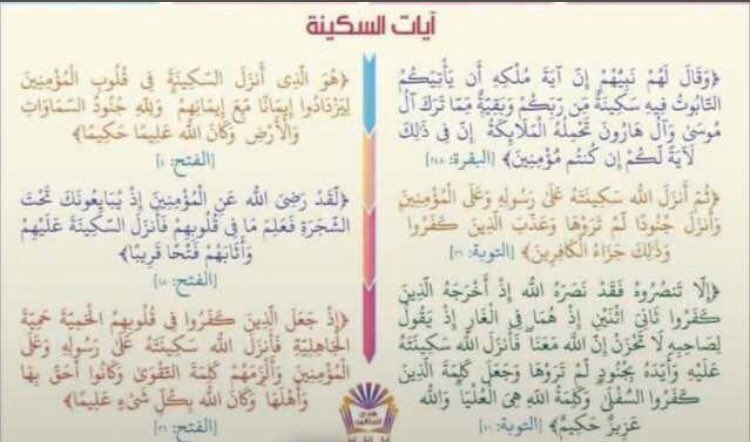 آيات السكينة
﴿وَقَالَ لَهُمْ نَبِيُّهُمْ إِنَّ آيَةَ مُلْكِهِ أَن يَأْتِيَكُمُ
التَّابُوتُ فِيهِ سَكِينَةٌ مِّن رَّبِّكُمْ وَبَقِيَّةٌ مِّمَّا تَرَكَ آلُ
مُوسَىٰ وَآلُ هَارُونَ تَحْمِلُهُ الْمَلَائِكَةُ إِنَّ فِي ذَٰلِكَ
لَآيَةً لَّكُمْ إِن كُنتُم مُّؤْمِنِينَ﴾ [البقرة: ٢٤٨]
﴿ثُمَّ أَنزَلَ اللَّهُ سَكِينَتَهُ عَلَىٰ رَسُولِهِ وَعَلَى الْمُؤْمِنِينَ
وَأَنزَلَ جُنُودًا لَّمْ تَرَوْهَا وَعَذَّبَ الَّذِينَ كَفَرُوا
وَذَٰلِكَ جَزَاءُ الْكَافِرِينَ﴾ [التوبة: ٢٦]
﴿إِلَّا تَنصُرُوهُ فَقَدْ نَصَرَهُ اللَّهُ إِذْ أَخْرَجَهُ الَّذِينَ
كَفَرُوا ثَانِيَ اثْنَيْنِ إِذْ هُمَا فِي الْغَارِ إِذْ يَقُولُ
لِصَاحِبِهِ لَا تَحْزَنْ إِنَّ اللَّهَ مَعَنَا فَأَنزَلَ اللَّهُ سَكِينَتَهُ
عَلَيْهِ وَأَيَّدَهُ بِجُنُودٍ لَّمْ تَرَوْهَا وَجَعَلَ كَلِمَةَ الَّذِينَ
كَفَرُوا السُّفْلَىٰ وَكَلِمَةُ اللَّهِ هِيَ الْعُلْيَا وَاللَّهُ
عَزِيزٌ حَكِيمٌ﴾ [التوبة: ٤٠]
﴿هُوَ الَّذِي أَنزَلَ السَّكِينَةَ فِي قُلُوبِ الْمُؤْمِنِينَ
لِيَزْدَادُوا إِيمَانًا مَّعَ إِيمَانِهِمْ وَلِلَّهِ جُنُودُ السَّمَاوَاتِ
وَالْأَرْضِ وَكَانَ اللَّهُ عَلِيمًا حَكِيمًا﴾
[الفتح: ٤]
﴿لَّقَدْ رَضِيَ اللَّهُ عَنِ الْمُؤْمِنِينَ إِذْ يُبَايِعُونَكَ تَحْتَ
الشَّجَرَةِ فَعَلِمَ مَا فِي قُلُوبِهِمْ فَأَنزَلَ السَّكِينَةَ عَلَيْهِمْ
وَأَثَابَهُمْ فَتْحًا قَرِيبًا﴾
[الفتح: ١٨]
﴿إِذْ جَعَلَ الَّذِينَ كَفَرُوا فِي قُلُوبِهِمُ الْحَمِيَّةَ حَمِيَّةَ
الْجَاهِلِيَّةِ فَأَنزَلَ اللَّهُ سَكِينَتَهُ عَلَىٰ رَسُولِهِ وَعَلَى
الْمُؤْمِنِينَ وَأَلْزَمَهُمْ كَلِمَةَ التَّقْوَىٰ وَكَانُوا أَحَقَّ بِهَا
وَأَهْلَهَا وَكَانَ اللَّهُ بِكُلِّ شَيْءٍ عَلِيمًا﴾
[الفتح: ٢٦]